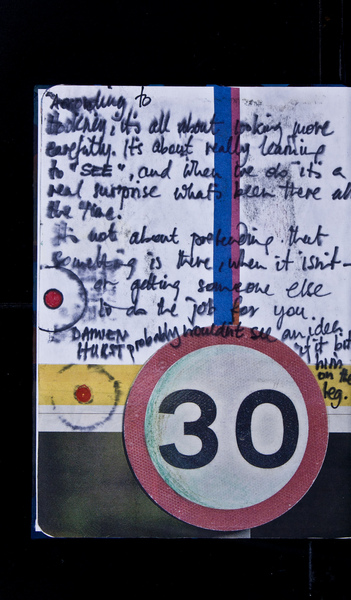 "According to
Hockney, it's all about looking more
carefully. It's about really learning
to "SEE", and when we do it's a
real surprise what's been there all
the time.
It's not about pretending that
something is there, when it isn't—
or getting someone else
to do the job for you.
DAMIEN probably wouldn't see an idea
HURST if it bit
him
on the
leg.
30